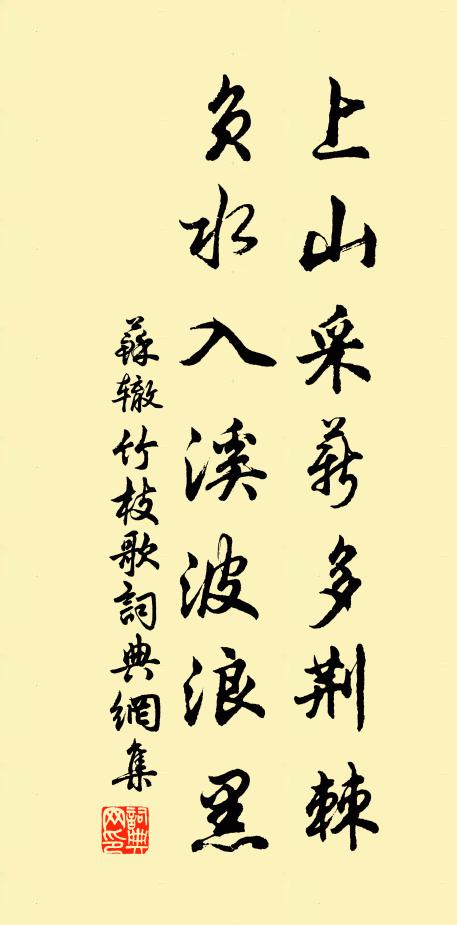 上山采薪多荆棘
负水入溪波浪黑
蘇辙竹枝歌詞典網集
詞典网印